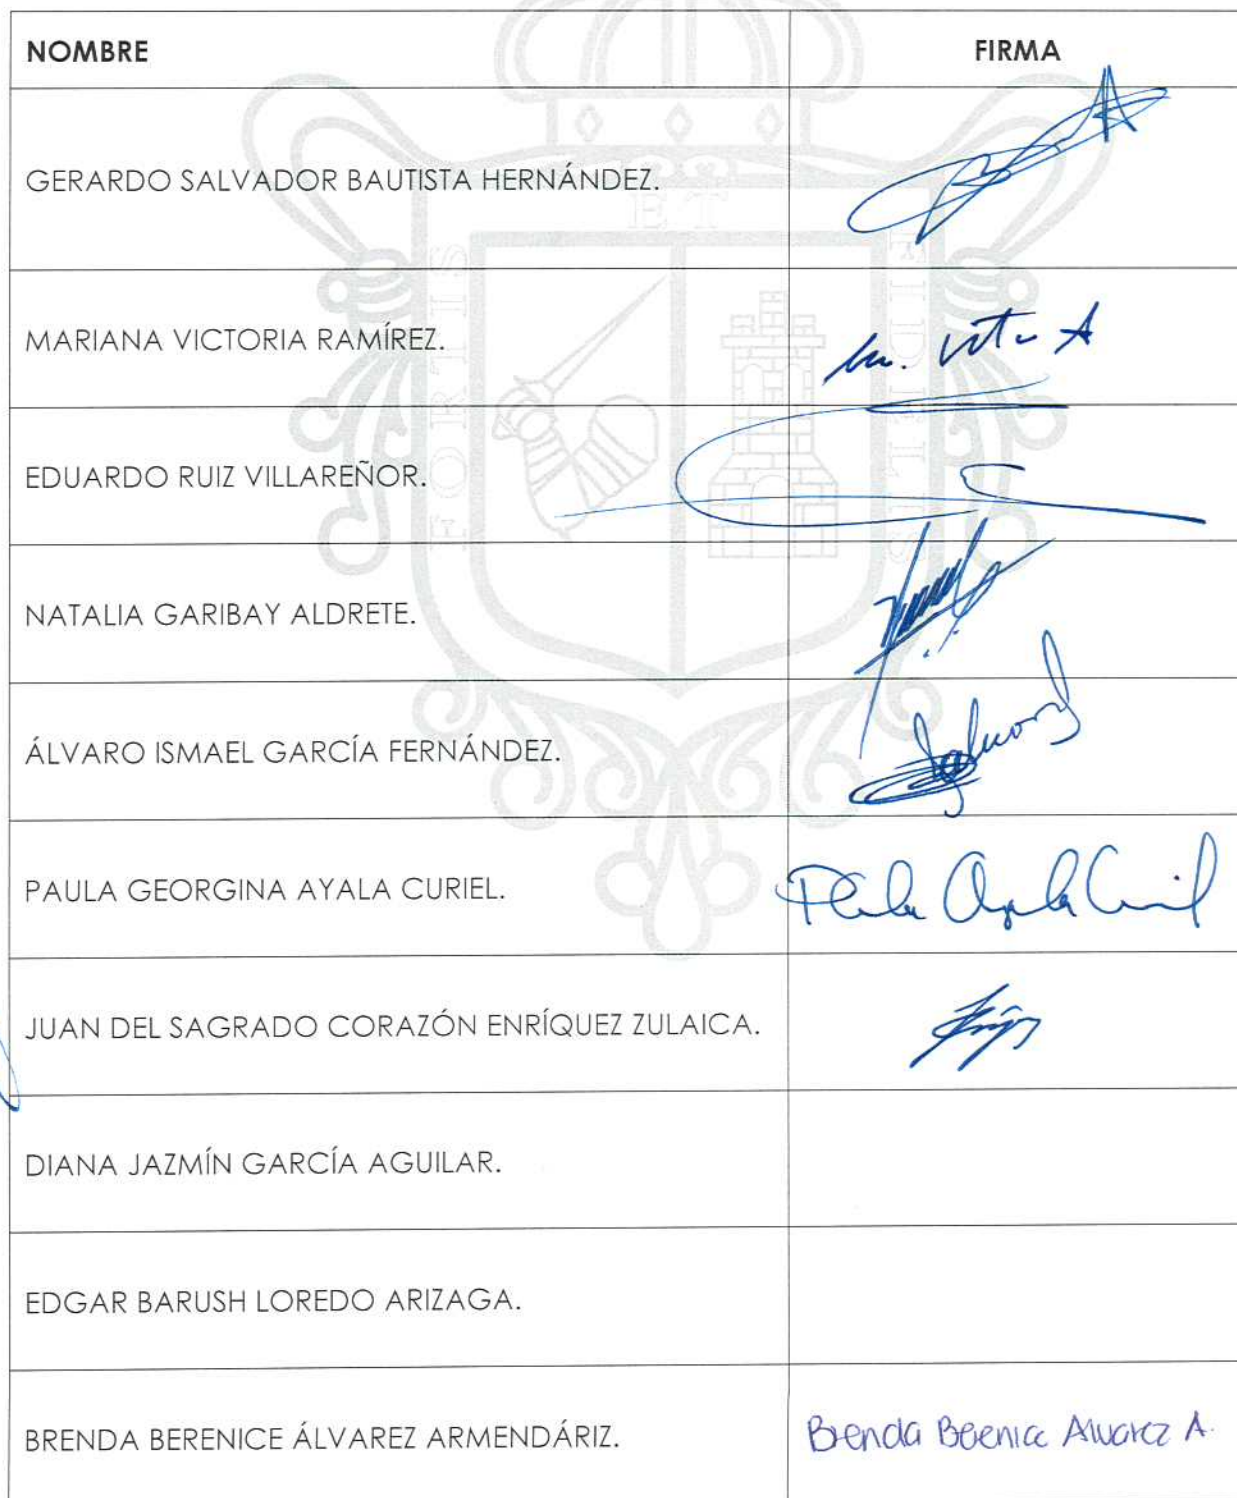 NOMBRE FIRMA
GERARDO SALVADOR BAUTISTA HERNÁNDEZ.
MARIANA VICTORIA RAMÍREZ.
EDUARDO RUIZ VILLAREÑOR.
NATALIA GARIBAY ALDRETE.
ÁLVARO ISMAEL GARCÍA FERNÁNDEZ.
PAULA GEORGINA AYALA CURIEL. Paula Ayala Curiel
JUAN DEL SAGRADO CORAZÓN ENRÍQUEZ ZULAICA.
DIANA JAZMÍN GARCÍA AGUILAR.
EDGAR BARUSH LOREDO ARIZAGA.
BRENDA BERENICE ÁLVAREZ ARMENDÁRIZ. Brenda Berenice Alvarez A.
FORTIS
ET
FIDELIS